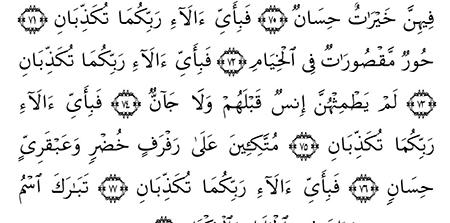 فِيهِنَّ خَيْرَٰتٌ حِسَانٌ ۝٧٠ فَبِأَيِّ ءَالَآءِ رَبِّكُمَا تُكَذِّبَانِ ۝٧١
حُورٌ مَّقْصُورَٰتٌ فِى الْخِيَامِ ۝٧٢ فَبِأَيِّ ءَالَآءِ رَبِّكُمَا تُكَذِّبَانِ
۝٧٣ لَمْ يَطْمِثْهُنَّ إِنسٌ قَبْلَهُمْ وَلَا جَآنٌّ ۝٧٤ فَبِأَيِّ ءَالَآءِ
رَبِّكُمَا تُكَذِّبَانِ ۝٧٥ مُتَّكِـِٔينَ عَلَىٰ رَفْرَفٍ خُضْرٍ وَعَبْقَرِىٍّ
حِسَانٍ ۝٧٦ فَبِأَيِّ ءَالَآءِ رَبِّكُمَا تُكَذِّبَانِ ۝٧٧ تَبَٰرَكَ اسْمُ